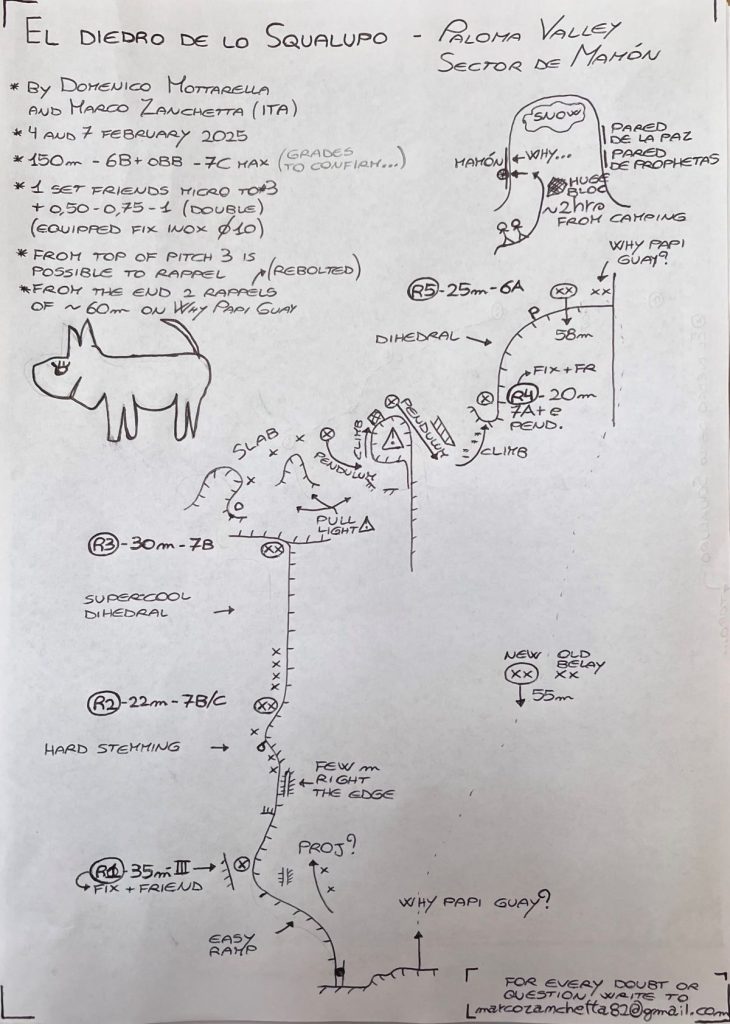 EL DIEDRO DE LO SQUALUPO - PALOMA VALLEY
SECTOR DE MAMÓN
* BY DOMENICO MOTTARELLA
AND MARCO ZANCHETTA (ITA)
* 4 AND 7 FEBRUARY 2025
* 150m - 6B+ OBB - 7C MAX (GRADES
TO CONFIRM...)
* 1 SET FRIENDS MICRO TO 3
+ 0,50 - 0,75 - 1 (DOUBLE)
(EQUIPPED FIX INOX Ø10)
* FROM TOP OF PITCH 3 IS
POSSIBLE TO RAPPEL (REBOLTED)
* FROM THE END 2 RAPPELS
OF ~ 60m ON WHY PAPI GUAY
SNOW
PARED
DE LA PAZ
PARED
DE PROPHETAS
MAMÓN
WHY...
HUGE
BLOC
~2hrs
FROM CAMPING
WHY PAPI
GUAY?
R5 - 25m - 6A
XX
XX
P
58m
DIHEDRAL
FIX + FR
R4 - 20m
7A+ e
PEND.
CLIMB
PENDULUM
CLIMB
PENDULUM
SLAB
PULL
LIGHT
R3 - 30m - 7B
XX
SUPERCOOL
DIHEDRAL
NEW OLD
BELAY
XX XX
55m
R2 - 22m - 7B/C
XX
HARD STEMMING
FEW m
RIGHT
THE EDGE
PROJ?
R1 - 35m - III
FIX + FRIEND
WHY PAPI GUAY?
EASY
RAMP
FOR EVERY DOUBT OR
QUESTION, WRITE TO
marcozamchetta82@gmail.com